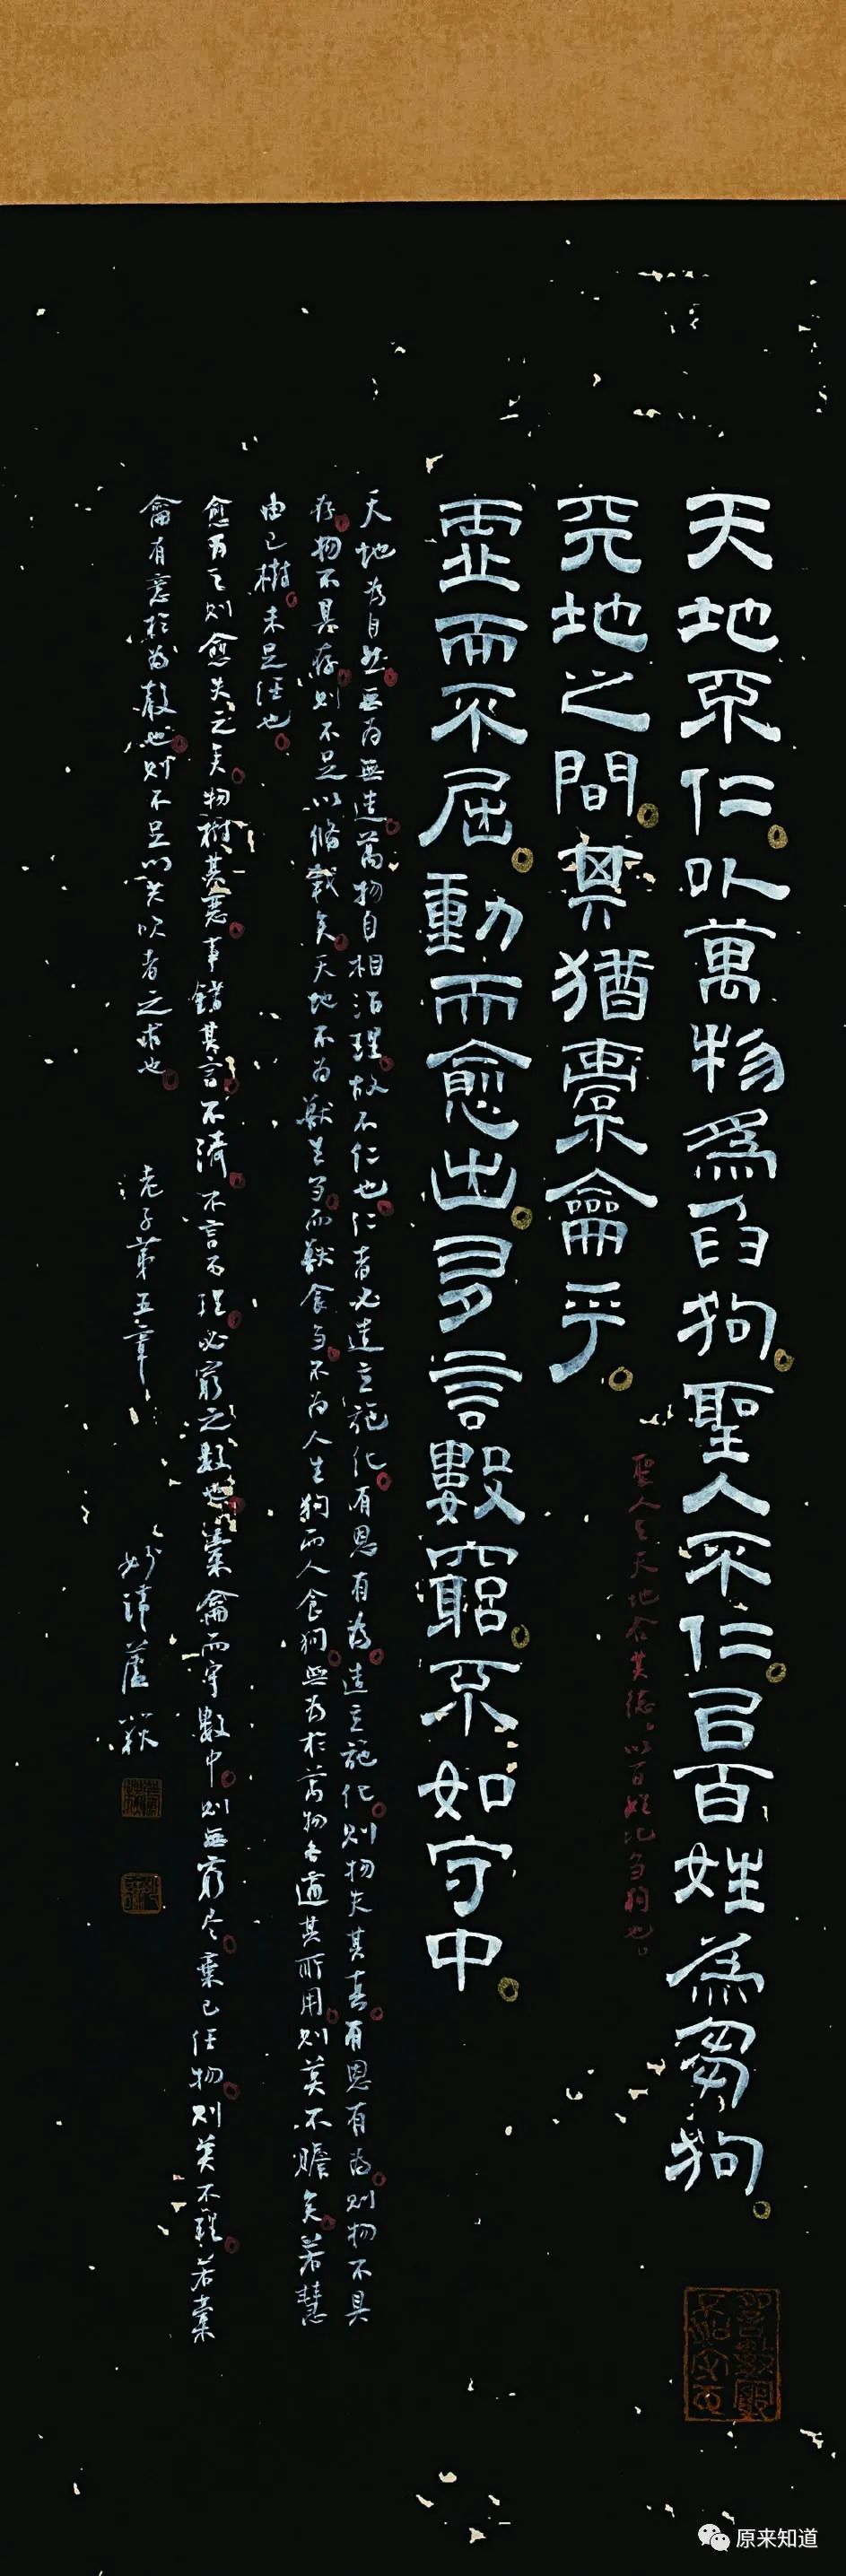 天地不仁以萬物為芻狗聖人不仁㠯百姓為芻狗
天地之間其猶橐籥乎
聖人與天地合其德以百姓比芻狗也
虛而不屈動而愈出多言數窮不如守中
天地為自然無為無造萬物自相治理故不仁也仁者必造立施化有恩有為造立施化則物失其真有恩有為則物不具
存物不具存則不足以備載矣天地不為獸生芻而獸食芻不為人生狗而人食狗無為於萬物各適其所用則莫不贍矣若慧
由己樹未足任也
愈為之則愈失之矣物樹其惡事錯其言不濟不言不理必窮之數也橐籥而守數中則無窮盡棄己任物則莫不理若橐
籥有意於為聲也則不足以共吹者之求也
老子第五章
妙諦蘆
多言數窮不如守中
原来知道